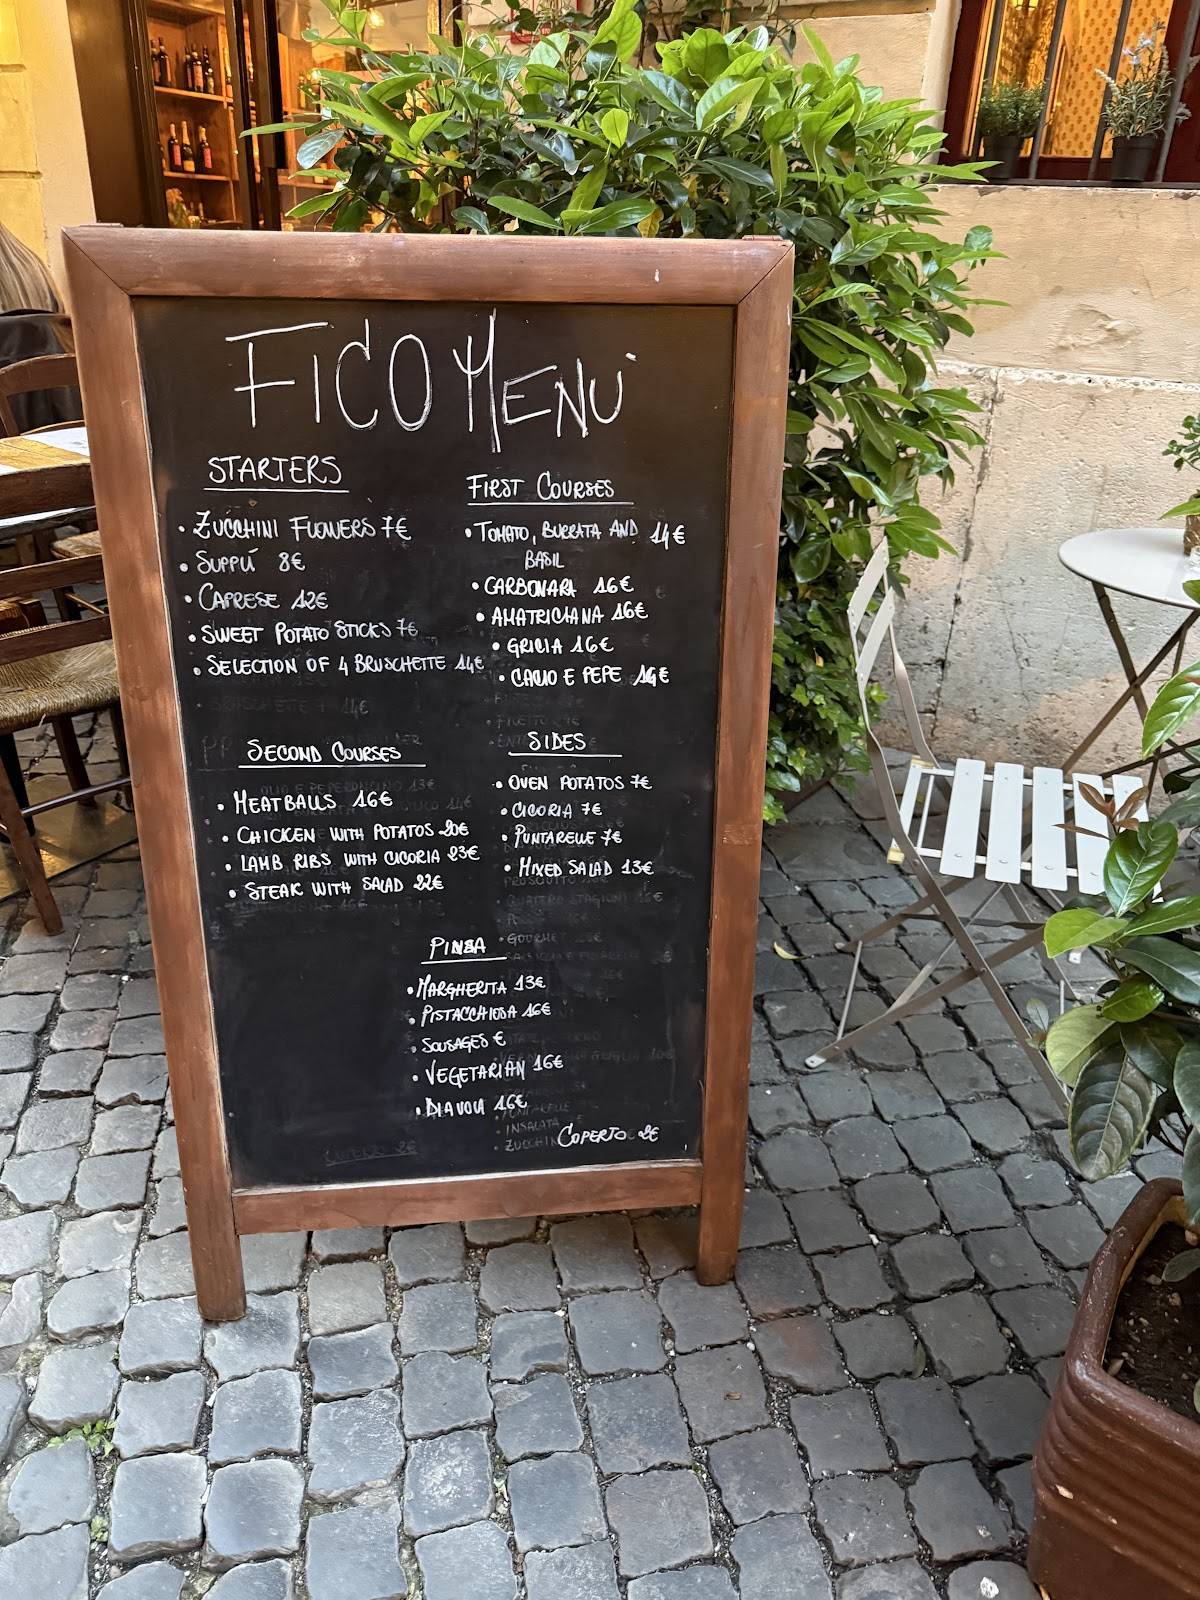 FICO MENÙ
STARTERS
• ZUCCHINI FLOWERS 7€
• SUPPLÍ 8€
• CAPRESE 12€
• SWEET POTATO STICKS 7€
• SELECTION OF 4 BRUSCHETTE 14€
FIRST COURSES
• TOMATO, BURRATA AND 14€
BASIL
• CARBONARA 16€
• AMATRICIANA 16€
• GRICIA 16€
• CACIO E PEPE
SECOND COURSES
• MEATBALLS 16€
• CHICKEN WITH POTATOS 20€
• LAMB RIBS WITH CICORIA 23€
• STEAK WITH SALAD 22€
SIDES
• OVEN POTATOS 7€
• CICORIA 7€
• PUNTARELLE 7€
• MIXED SALAD 13€
PINSA
• MARGHERITA 13€
• PISTACCHIOSA 16€
• SOUSAGES €
• VEGETARIAN 16€
• DIAVOLA 16€
COPERTO 2€